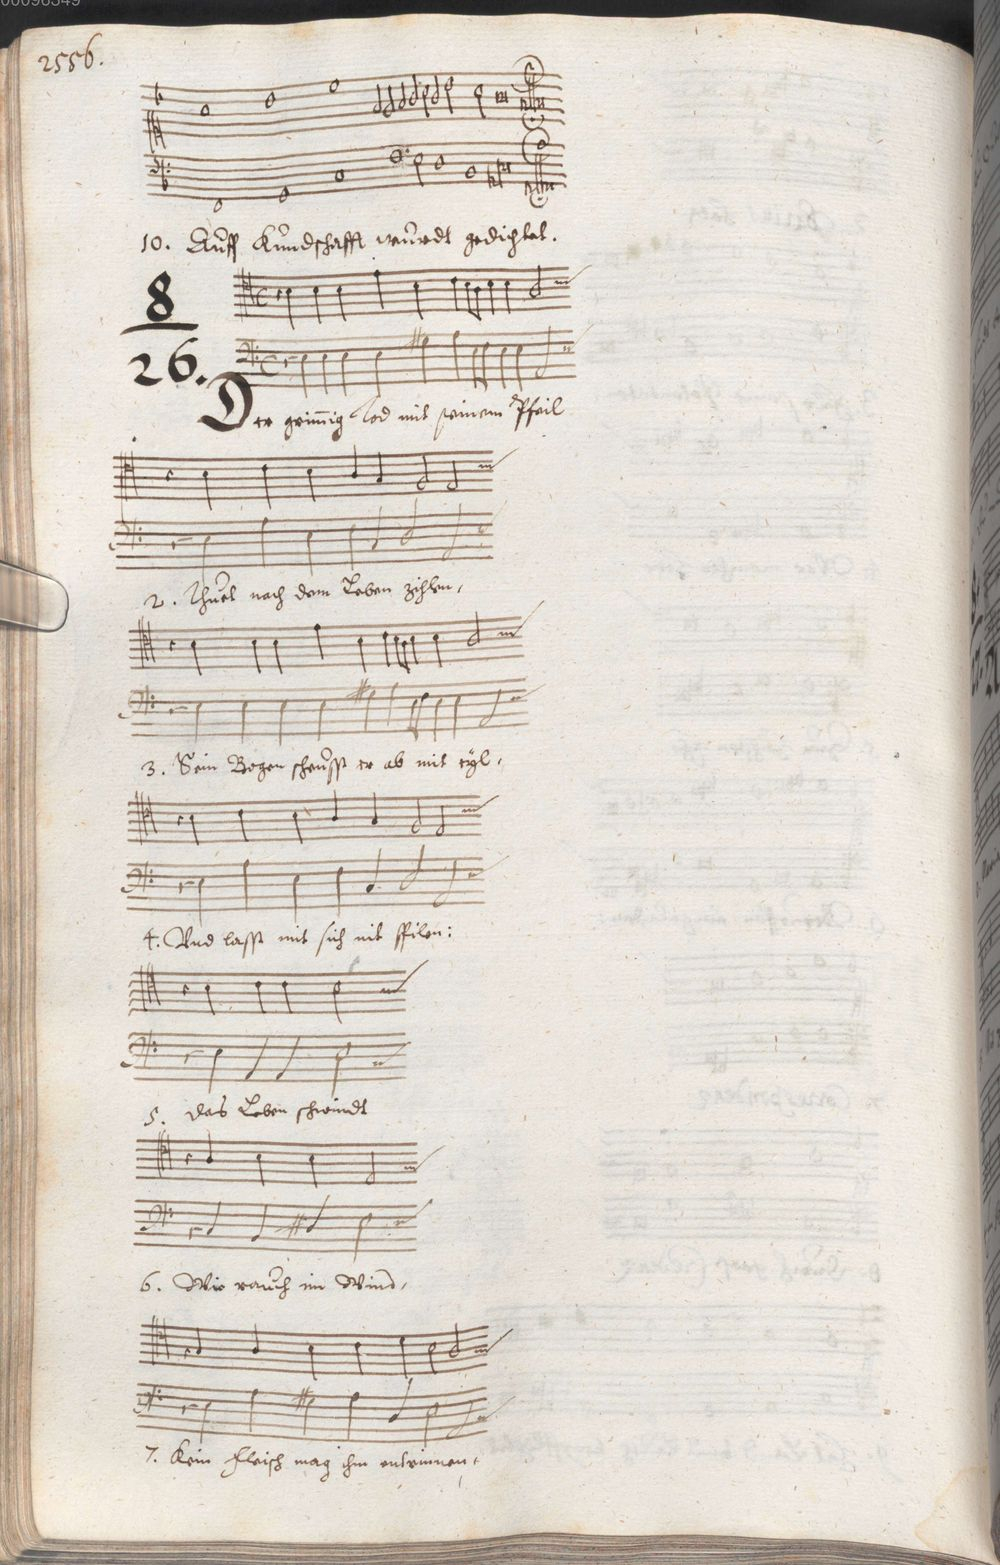 00098349
2556.
10. Auff Kundschafft wurdt gedichtet.
8
26.
Der grim̄ig Tod mit seinem Pfeil
2. Thuet nach dem Leben zihlen,
3. Sein Bogen scheusst er ab mit eÿl,
4. Vnd lasst mit sich nit spilen:
5. das Leben schwindt
6. Wie rauch im Wind,
7. Kein fleisch mag ihm entrinnen,